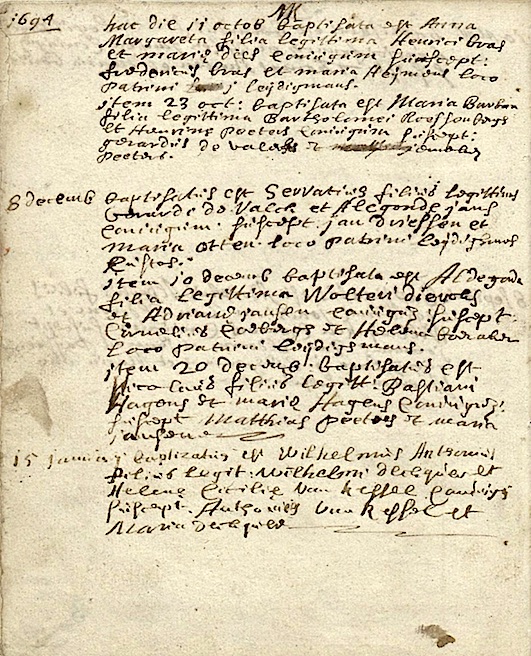 1694
hac die 11 octob baptisata est Anna
Margareta filia legitima Henrici bras
et mariæ dils coniugum suscept:
fredericus bras et maria Heijmens loco
patrini j leijdigmans.
item 23 oct: baptisata est Maria Barbara
filia legittima Bartholomei
et Henrinæ Peeters coniugum suscept:
gerardus de valck et
Peeters.
8 decemb baptisatus est Servatius filius legittimus
Gerardi de Valck et Alegondæ jans
coniugum. suscept. jan driessen et
Maria otten. loco patrini leijdigmans
Kustos.
item 10 decemb baptisata est Aldegoda
filia legittima Wolteri
et Adrianæ jansen coniugum suscept.
Cornelius et Helena
loco patrini leijdigmans.
item 20 decemb: baptisatus est
Nicolaus filius legitt: Bastiani
Hagens et mariæ Hagens coniugum.
suscept Matthias peeters et maria
jansene
15 januarij baptizatus est Wilhelmus Antonius
filius legit. Wilhelmi et
Helenæ Ceciliæ van Kessel coniugum
suscept. Anthonius van Kessel et
Maria